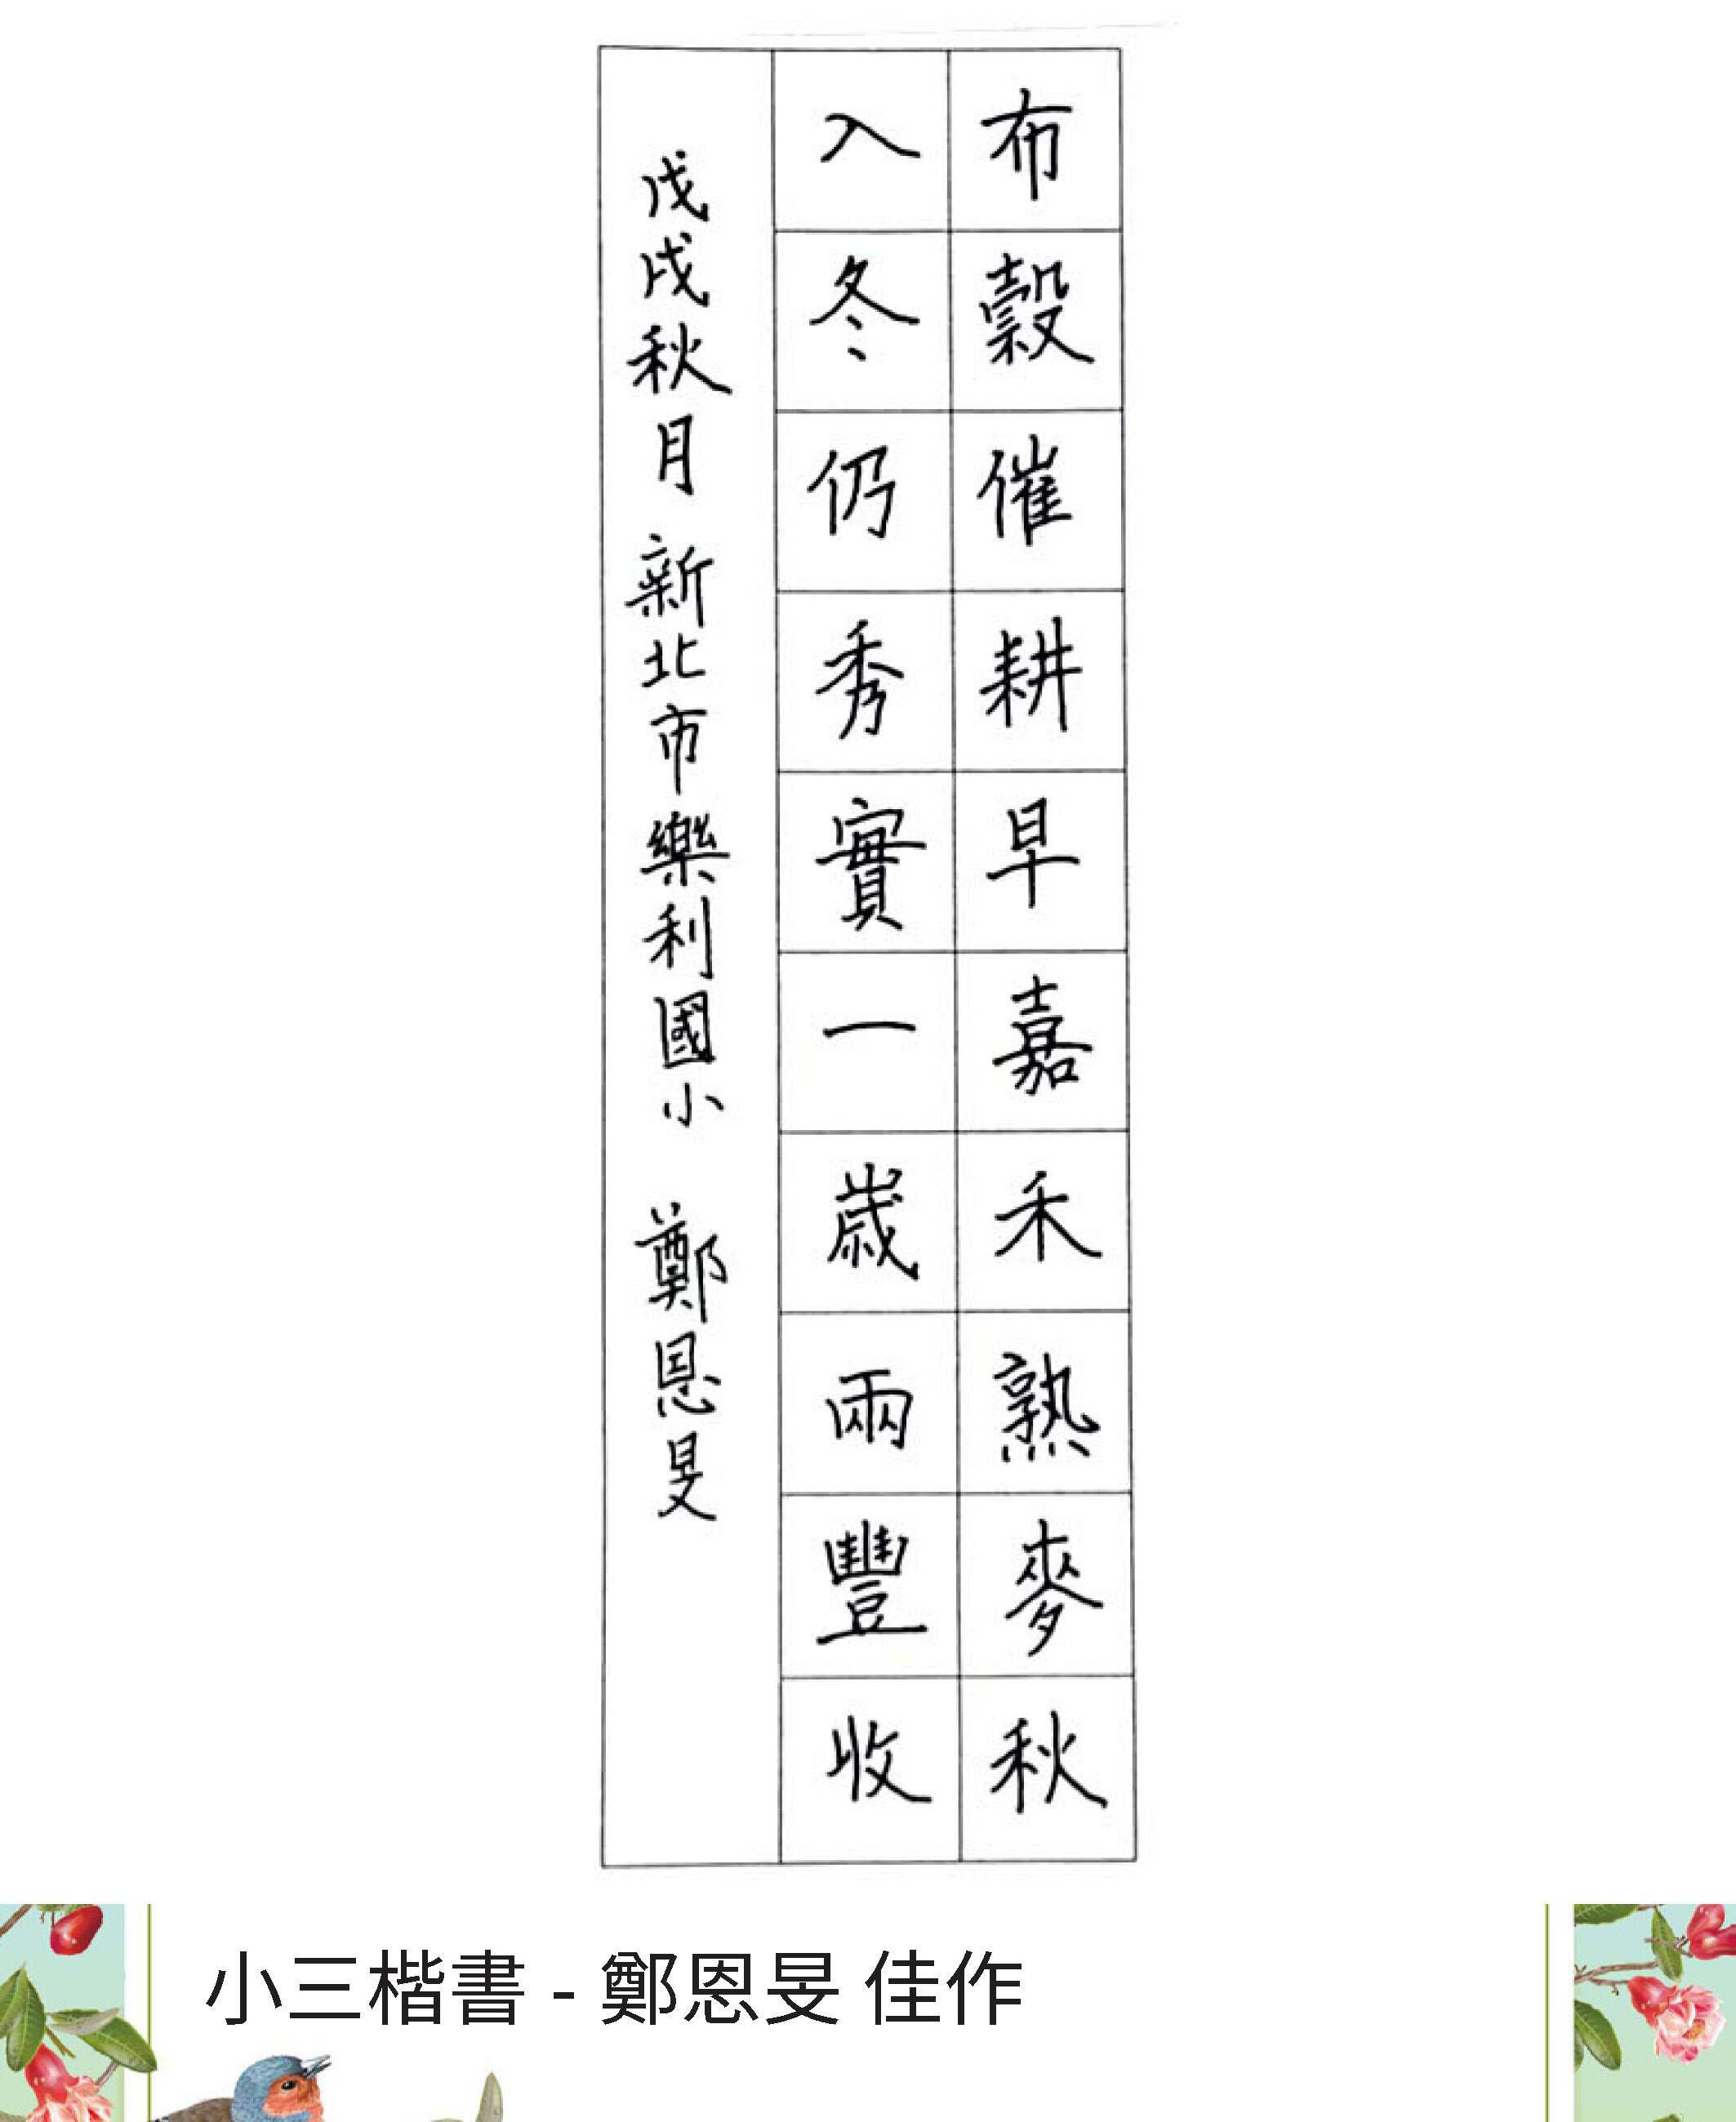 布穀催耕早嘉禾熟麥秋
入冬仍秀實一歲兩豐收
戊戌秋月 新北市樂利國小 鄭恩旻
小三楷書 - 鄭恩旻 佳作